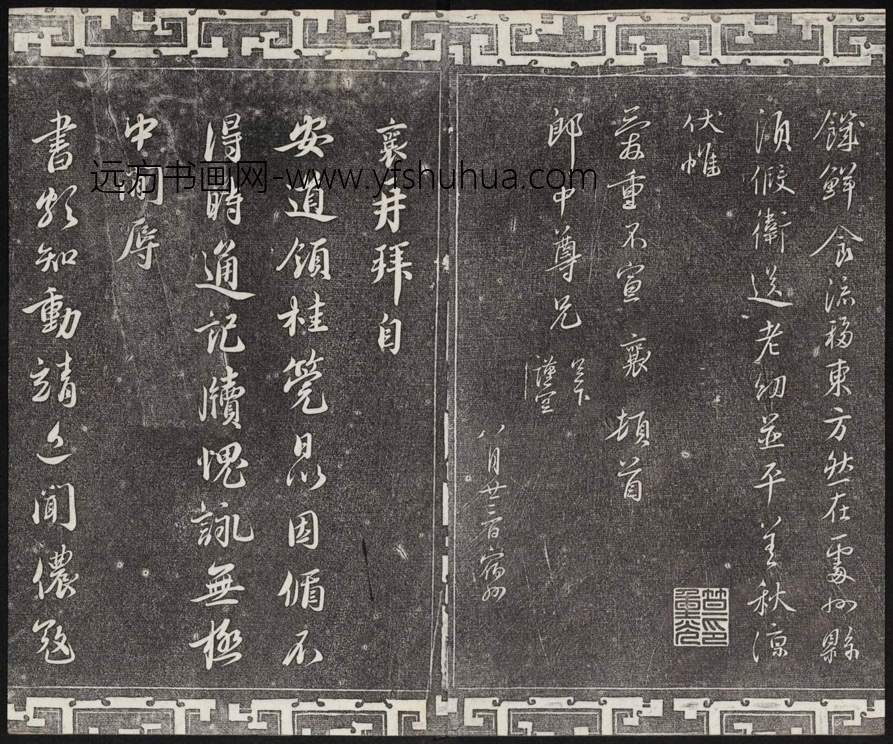 饑鮮食流移東方然在處州縣
須假衛送老幼並平善秋涼
伏惟
愛重不宣 襄 頓首
郎中尊兄 足下 謹空
八月廿三日宿州
襄再拜自
安道領桂筦日以因循不
得時通記牘愧詠無極
中間辱
書頗知動靖近聞儂寇
远方书画网-www.yfshuhua.com